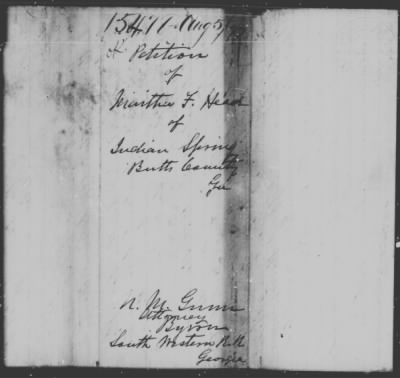 15411 Aug 5
Petition
of
Martha F. Head
of
Indian Spring
Butts County
Ga
A. M. Gunn
Attorney
Byron
South Western R.R.
Georgia